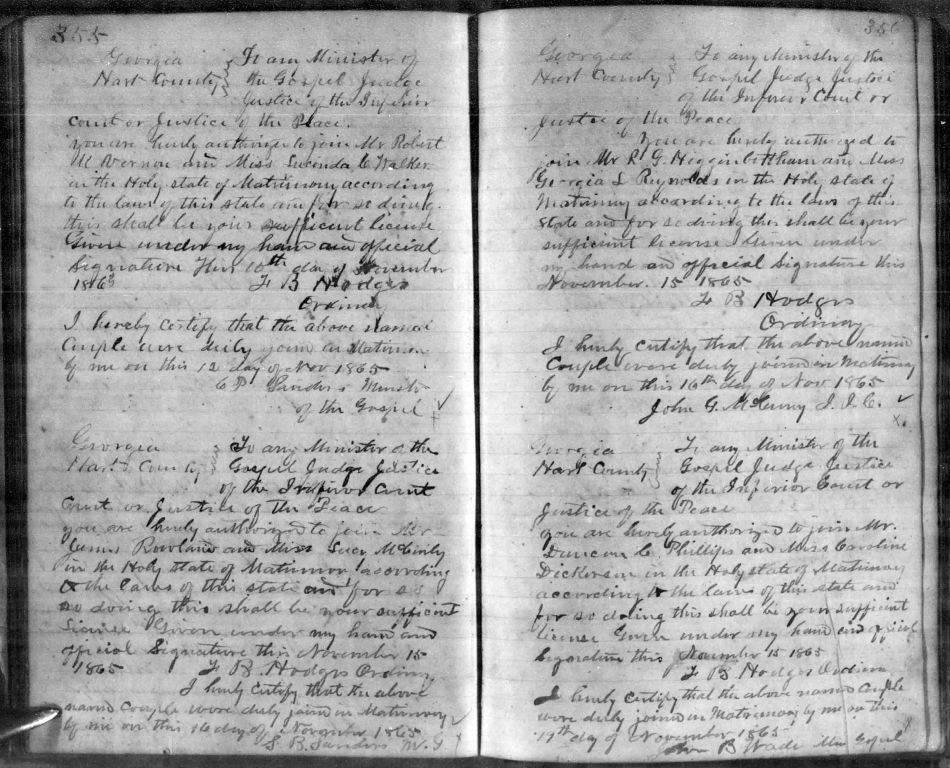 355
Georgia } To any Minister of
Hart County } the Gospel Judge
Justice of the Inferior
Court or Justice of the Peace.
you are hereby authorize to join Mr Robert
Vernon and Miss Lucinda C Walker
in the Holy state of Matrimony according
to the laws of this state and for so doing
this shall be your sufficient license
Given under my hand and official
Signature This 10th day of November
1865 F B Hodges
Ordinary
I hereby certify that the above named
Couple were duly join in Matrimony
by me on this 12 day of Nov 1865
Sanders Minister
of the Gospel
Georgia } To any Minister of the
Hart County } Gospel Judge Justice
of the Inferior Court
Court or Justice of the Peace
you are hereby authorized to join Mr
James Rowland and Miss Lucy
in the Holy state of Matrimony according
to the laws of this state and for so
so doing this shall be your sufficient
License Given under my hand and
official Signature this November 15
1865 F B. Hodges Ordinary
I hereby certify that the above
named Couple were duly joined in Matrimony
by me on this 16 day of November 1865
Sanders M. G
356
Georgia } To any Minister of the
Hart County } Gospel Judge Justice
of the Inferior Court or
Justice of the Peace
You are hereby authorized to
join Mr R. G. Higginbottham and Miss
Georgia L Reynolds in the Holy state of
Matrimony according to the laws of this
state and for so doing this shall be your
sufficient license Given under
my hand and official Signature this
November. 15 1865
F B Hodges
Ordinary
I hereby certify that the above named
Couple were duly joined in Matrimony
by me on this 16th day of Nov 1865
John G. McCurry J. I. C.
Georgia } To any Minister of the
Hart County } Gospel Judge Justice
of the Inferior Court or
Justice of the Peace
you are hereby authorized to join Mr.
Duncan C. Phillips and Miss Caroline
Dickerson in the Holy state of Matrimony
according to the laws of this state and
for so doing this shall be your sufficient
license Given under my hand and official
Signature this November 15 1865
F B Hodges Ordinary
I hereby certify that the above named Couple
were duly joined in Matrimony by me on this
19th day of November 1865
B Wade Min Gospel